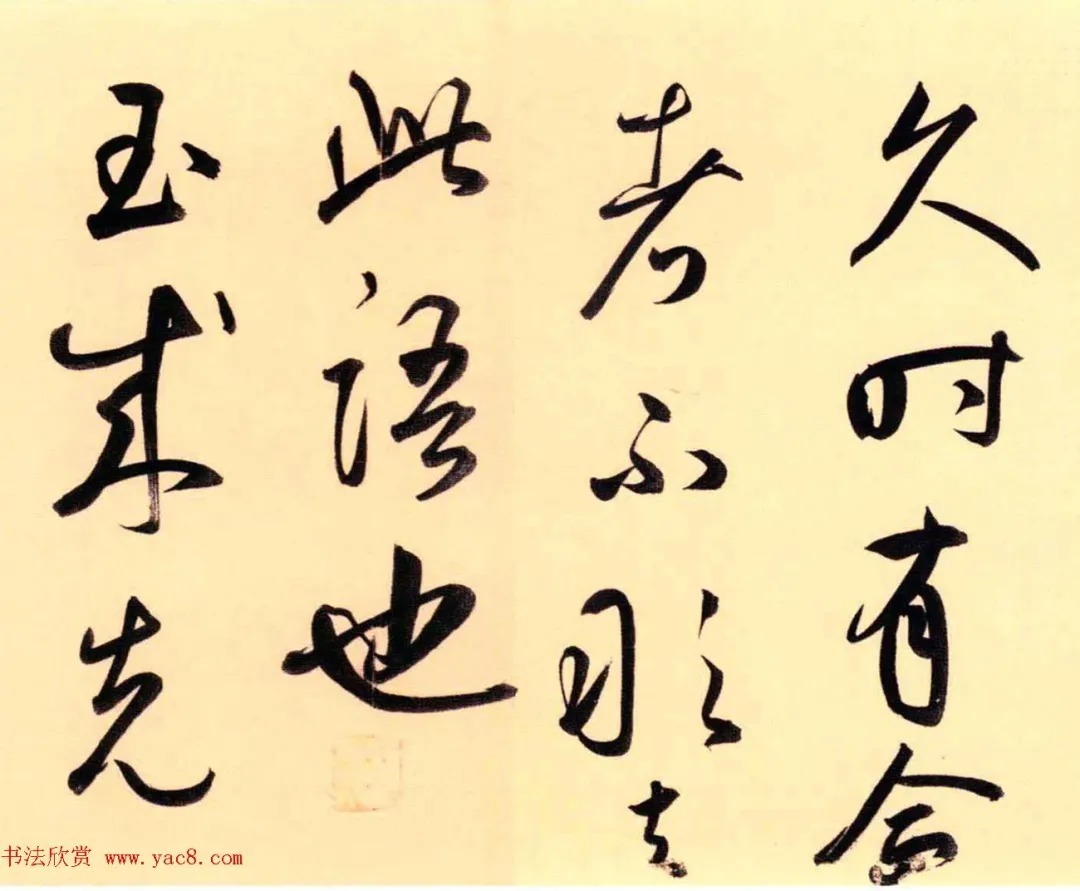 久时有合
者不
此語也
玉成先
书法欣赏 www.yac8.com